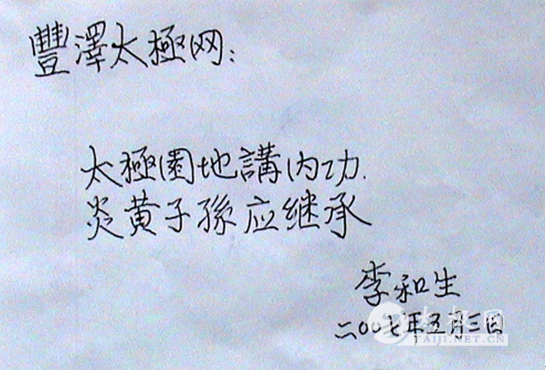 豐澤太極网：
太極園地講内功.
炎黄子孫应继承
李和生
二00七年五月三日
太极网
TAIJI.NET.CN